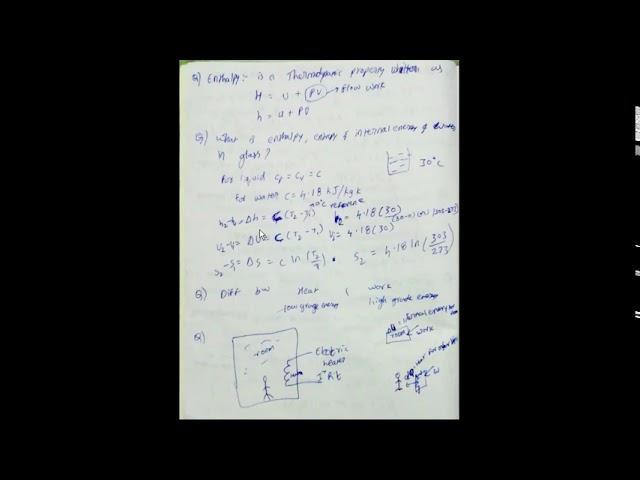 Q) Enthalpy:- is a Thermodynamic property written as
H = U + PV → flow work
h = u + PV
Q) What is enthalpy, entropy & internal energy of water
in glass?
30°C
For liquid Cp = Cv = C
For water C = 4.18 kJ/kg k
0°C reference
h2-h1 = Δh = C (T2-T1) h2 = 4.18 (30) (30-0) or (303-273)
U2-U1 = ΔU = C (T2-T1) U2 = 4.18 (30)
S2-S1 = ΔS = C ln (T2/T1) . S2 = 4.18 ln (303/273)
Q) Diff b/w Heat & work
low grade energy high grade energy
Q)
room
Electric
heater
I²Rt
internal energy
room
work
W